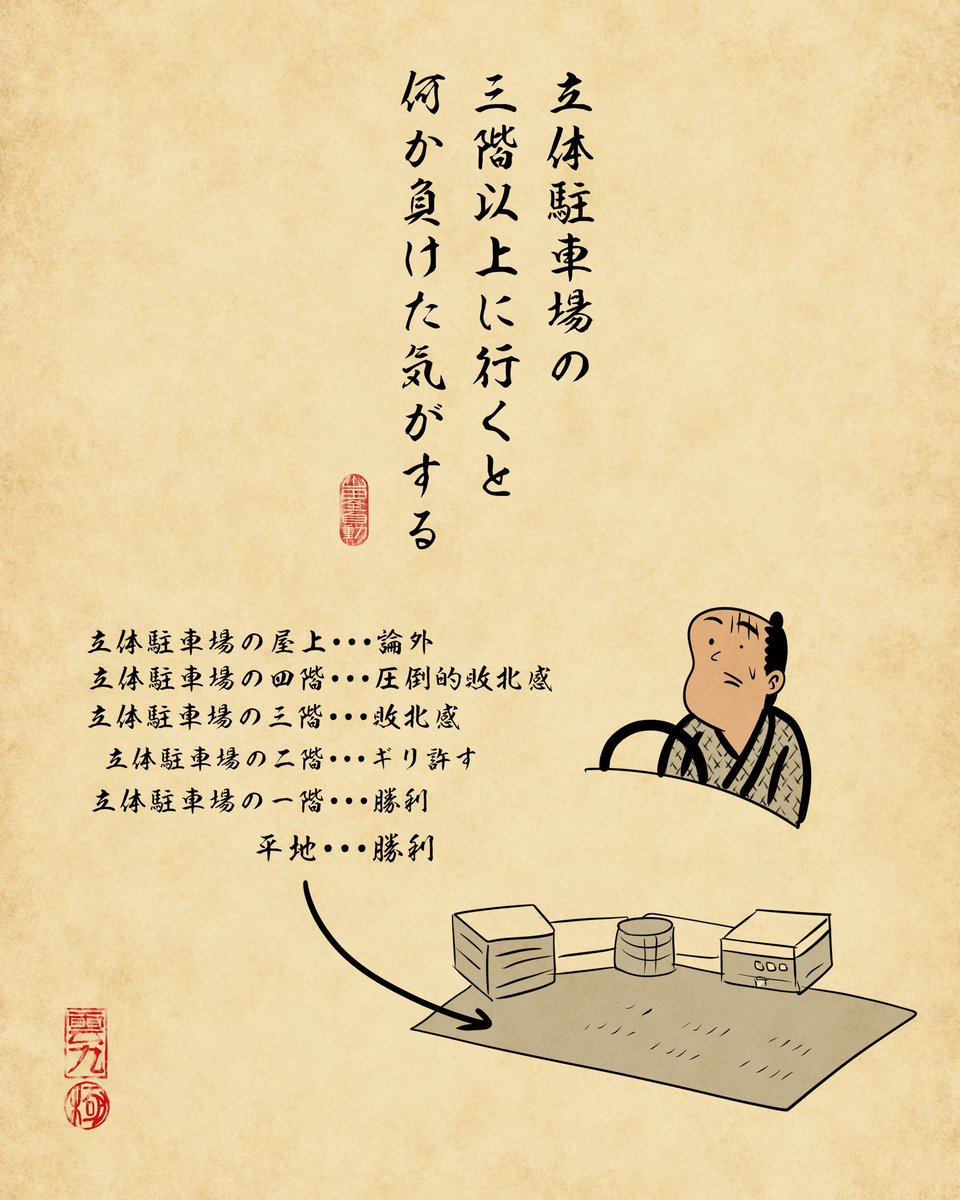 立体駐車場の
三階以上に行くと
何か負けた気がする
立体駐車場の屋上・・・論外
立体駐車場の四階・・・圧倒的敗北感
立体駐車場の三階・・・敗北感
立体駐車場の二階・・・ギリ許す
立体駐車場の一階・・・勝利
平地・・・勝利